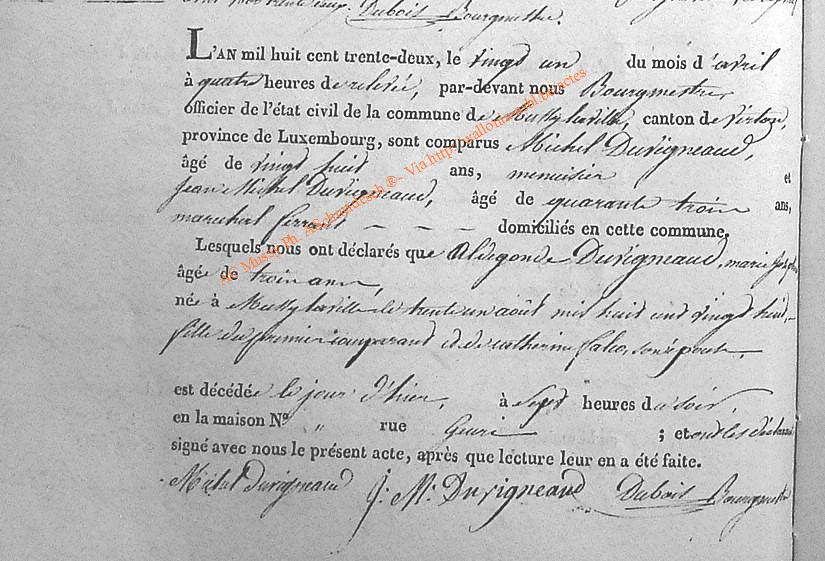 Dubois Bourgmestre.
L'AN mil huit cent trente-deux, le vingt un du mois d'avril
à quatre heures de relevée, par-devant nous Bourgmestre
officier de l'état civil de la commune de Mussy la ville, canton de Virton,
province de Luxembourg, sont comparus Michel Duvigneaud,
âgé de vingt huit ans, menuisier et
Jean Michel Duvigneaud, âgé de quarante trois ans,
marechal ferrant - - - domiciliés en cette commune.
Lesquels nous ont déclarés que Aldegonde Duvigneaud, marie
âgée de trois ans,
née à Mussy la ville le trente un août mil huit cent vingt huit,
fille du premier comparant et de catherine falco, son épouse,
est décédée le jour d'hier, à sept heures du soir,
en la maison N° " rue ; et ont les déclarans
signé avec nous le présent acte, après que lecture leur en a été faite.
Michel Duvigneaud J: M: Duvigneaud Dubois Bourgmestre
AC Mussy. Ph. ASchmidesch ®- Via http://wallonica